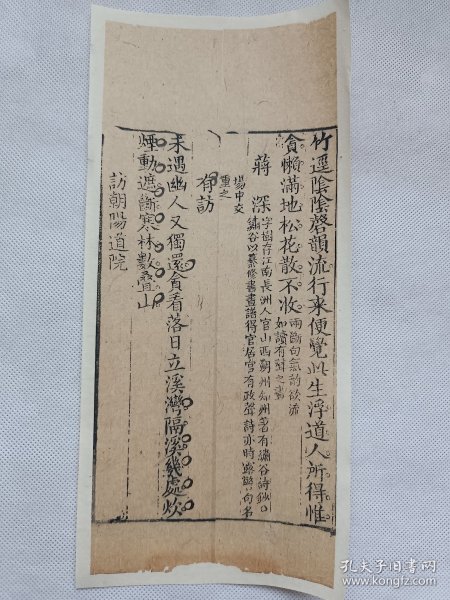 竹逕陰陰磬韻流行来便覺此生浮道人所得惟
貪懶滿地松花散不收
兩斷句氣韵欲流
如讀有聲之畫
蔣深
字樹存江南長洲人官山西朔州知州著有繡谷詩鈔〇
繡谷以纂修書畫譜得官居官有政聲詩亦時露警句名
場中交
重之
有訪
未遇幽人又獨還貪看落日立溪灣隔溪幾處炊
煙動遮斷寒林數疊山
訪朝陽道院
孔夫子旧书网
www.kongfz.com